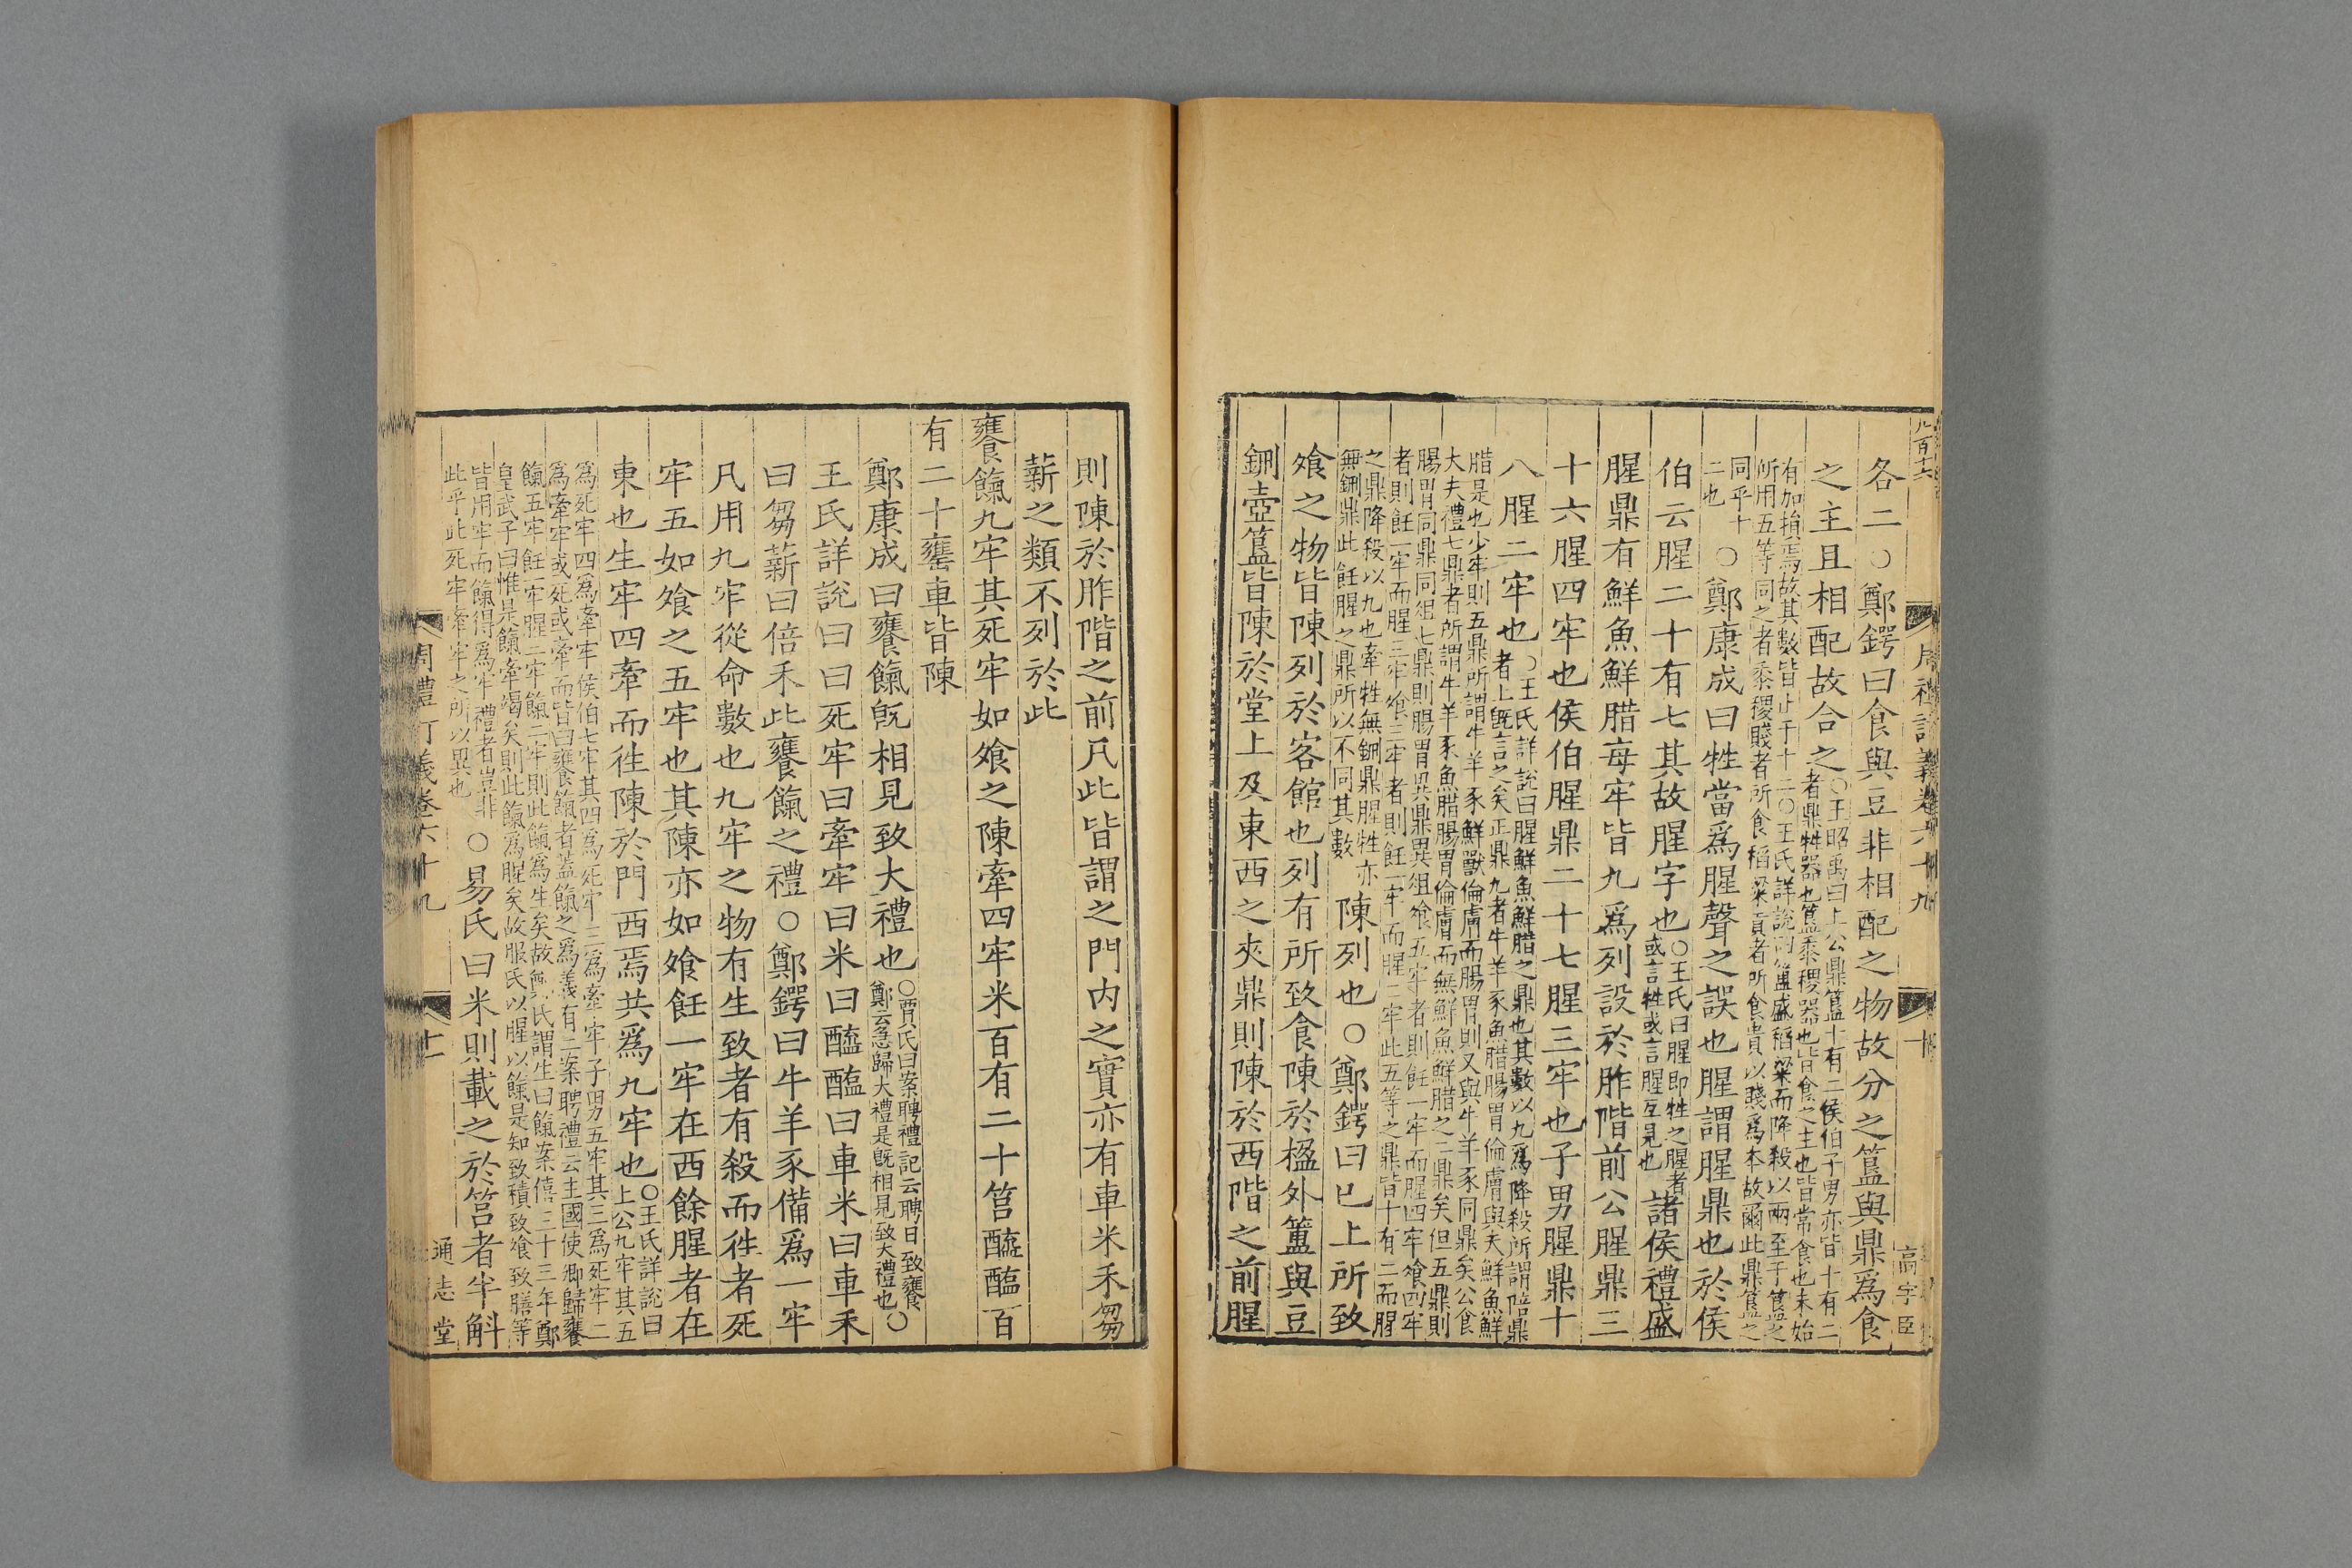 各二○鄭鍔曰食與豆非相配之物故分之簋與鼎爲食
之主且相配故合之○王昭禹曰上公鼎簋十有二侯伯子男亦皆十有二
者鼎牲器也簋黍稷器也皆食之主也皆常食也未始
有加損焉故其數皆止于十二○王氏詳說曰簠盛稻粱而降殺以兩至于簋之
所用五等同之者黍稷賤者所食稻粱貴者所食貴以賤爲本故爾此鼎簋之
同乎十
二也○鄭康成曰牲當爲腥聲之誤也腥謂腥鼎也於侯
伯云腥二十有七其故腥字也○王氏曰腥即牲之腥者
或言牲或言腥互見也諸侯禮盛
腥鼎有鮮魚鮮腊每牢皆九爲列設於阼階前公腥鼎三
十六腥四牢也侯伯腥鼎二十七腥三牢也子男腥鼎十
八腥二牢也○王氏詳說曰腥鮮魚鮮腊之鼎也其數以九爲降殺所謂陪鼎
者上旣言之矣正鼎九者牛羊豕魚腊腸胃倫膚與夫鮮魚鮮
腊是也少牢則五鼎所謂牛羊豕鮮獸倫膚而腸胃則又與牛羊豕同鼎矣公食
大夫禮七鼎者所謂牛羊豕魚腊腸胃倫膚而無鮮魚鮮腊之二鼎矣但五鼎則
腸胃同鼎同俎七鼎則腸胃異鼎異俎飧五牢者則飪一牢而腥四牢飧四牢
者則飪一牢而腥三牢飧三牢者則飪一牢而腥二牢此五等之鼎皆十有二而腥
之鼎降殺以九也牽牲無鉶鼎腥牲亦
無鉶鼎此飪腥之鼎所以不同其數陳列也○鄭鍔曰已上所致
飧之物皆陳列於客館也列有所致食陳於楹外簠與豆
鉶壺簋皆陳於堂上及東西之夾鼎則陳於西階之前腥
則陳於阼階之前凡此皆謂之門內之實亦有車米禾芻
薪之類不列於此
饔餼九牢其死牢如飧之陳牽四牢米百有二十筥醯醢百
有二十罋車皆陳
鄭康成曰饔餼旣相見致大禮也○賈氏曰案聘禮記云聘日致饔
鄭云急歸大禮是旣相見致大禮也○
王氏詳說曰曰死牢曰牽牢曰米曰醯醢曰車米曰車禾
曰芻薪曰倍禾此饔餼之禮○鄭鍔曰牛羊豕備爲一牢
凡用九牢從命數也九牢之物有生致者有殺而徃者死
牢五如飧之五牢也其陳亦如飧飪一牢在西餘腥者在
東也生牢四牽而徃陳於門西焉共爲九牢也○王氏詳說曰
上公九牢其五
爲死牢四爲牽牢侯伯七牢其四爲死牢三爲牽牢子男五牢其三爲死牢二
爲牽牢或死或牽而皆曰饔餼者蓋餼之爲義有二案聘禮云主國使卿歸饔
餼五牢飪一牢腥二牢餼二牢則此餼爲生矣故鄭氏謂生曰餼案僖三十三年鄭
皇武子曰惟是餼牽竭矣則此餼爲腥矣故服氏以腥以餼是知致積致飧致膳等
皆用牢而餼得爲牢禮者豈非
此乎此死牢牽牢之所以異也○易氏曰米則載之於筥者半斛
周禮訂義卷六十九
十一
通志堂